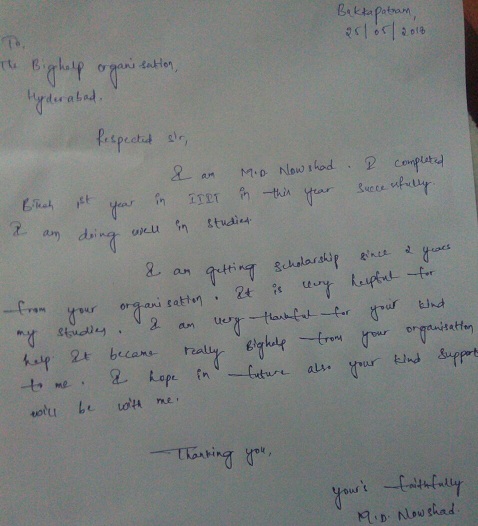 Bukkapatnam,
25/05/2018
To,
The Bighelp organisation,
Hyderabad.
Respected sir,
I am M.D. Nowshad. I completed
Btech 1st year in IIIT in this year successfully.
I am doing well in studies
I am getting scholarship since 2 years
from your organisation. It is very helpful for
my studies. I am very thankful for your kind
help It became really Bighelp from your organisation
to me. I hope in future also your kind support
will be with me.
Thanking you,
your's faithfully
M.D. Nowshad.